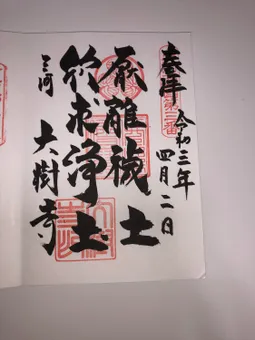 奉拝 令和三年四月二日
厭離穢土
欣求浄土
三河 大樹寺